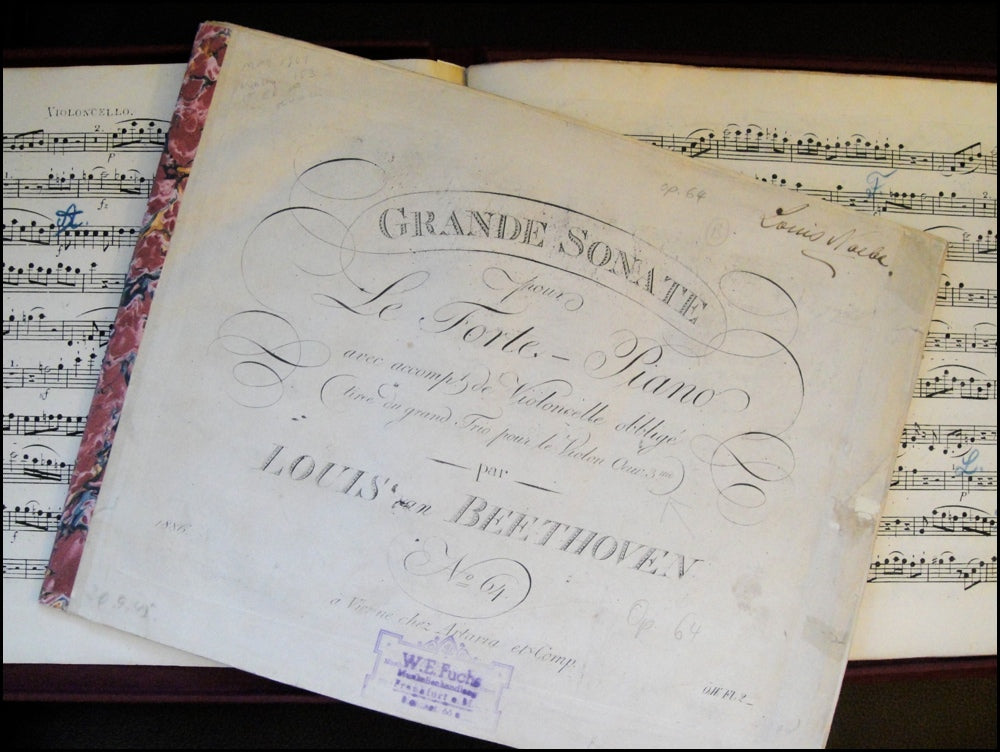 VIOLONCELLO.
op. 64
GRANDE SONATE
pour
Le Forte - Piano
avec accompt. de Violoncelle obligé
(tiré du grand Trio pour le Violon Oeuv. 3me)
par
LOUIS van BEETHOVEN
No 64.
1886.
Op. 64
a Vienne chez Artaria et Comp.
W.E. Fuchs
Musikalienhandlung
Frankfurt a. M.